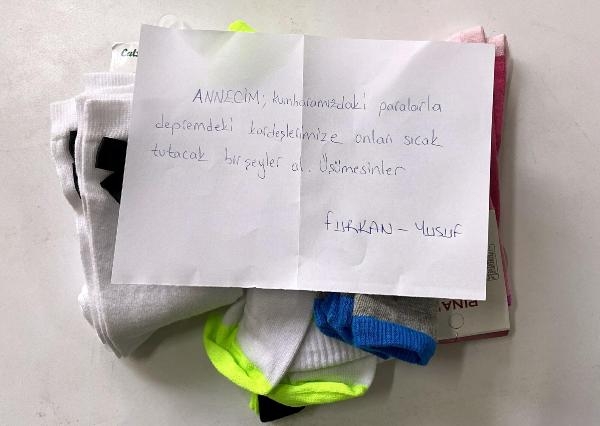 ANNECİM; kumbaramızdaki paralarla
depremdeki kardeşlerimize onları sıcak
tutacak bir şeyler al. Üşümesinler
FURKAN - YUSUF